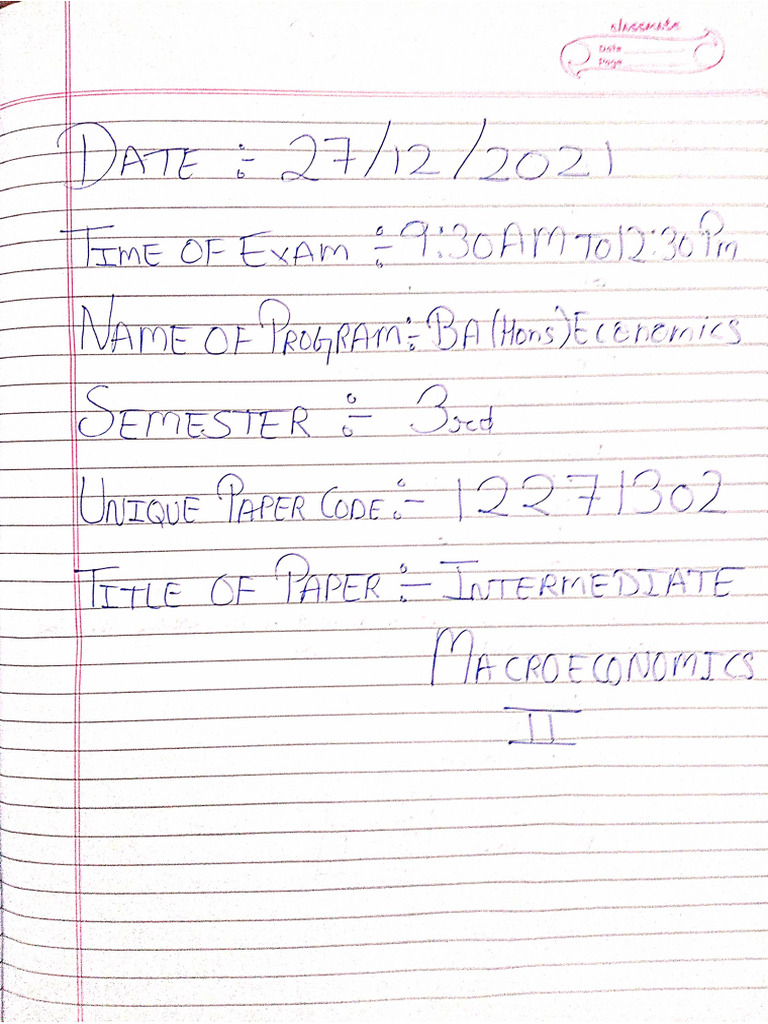 classmate
Date
Page
DATE :- 27/12/2021
TIME OF EXAM :- 9:30AM TO 12:30Pm
NAME OF PROGRAM:- BA(Hons) Economics
SEMESTER :- 3rd
UNIQUE PAPER CODE:- 12271302
TITLE OF PAPER:- INTERMEDIATE
MACROECONOMICS
II